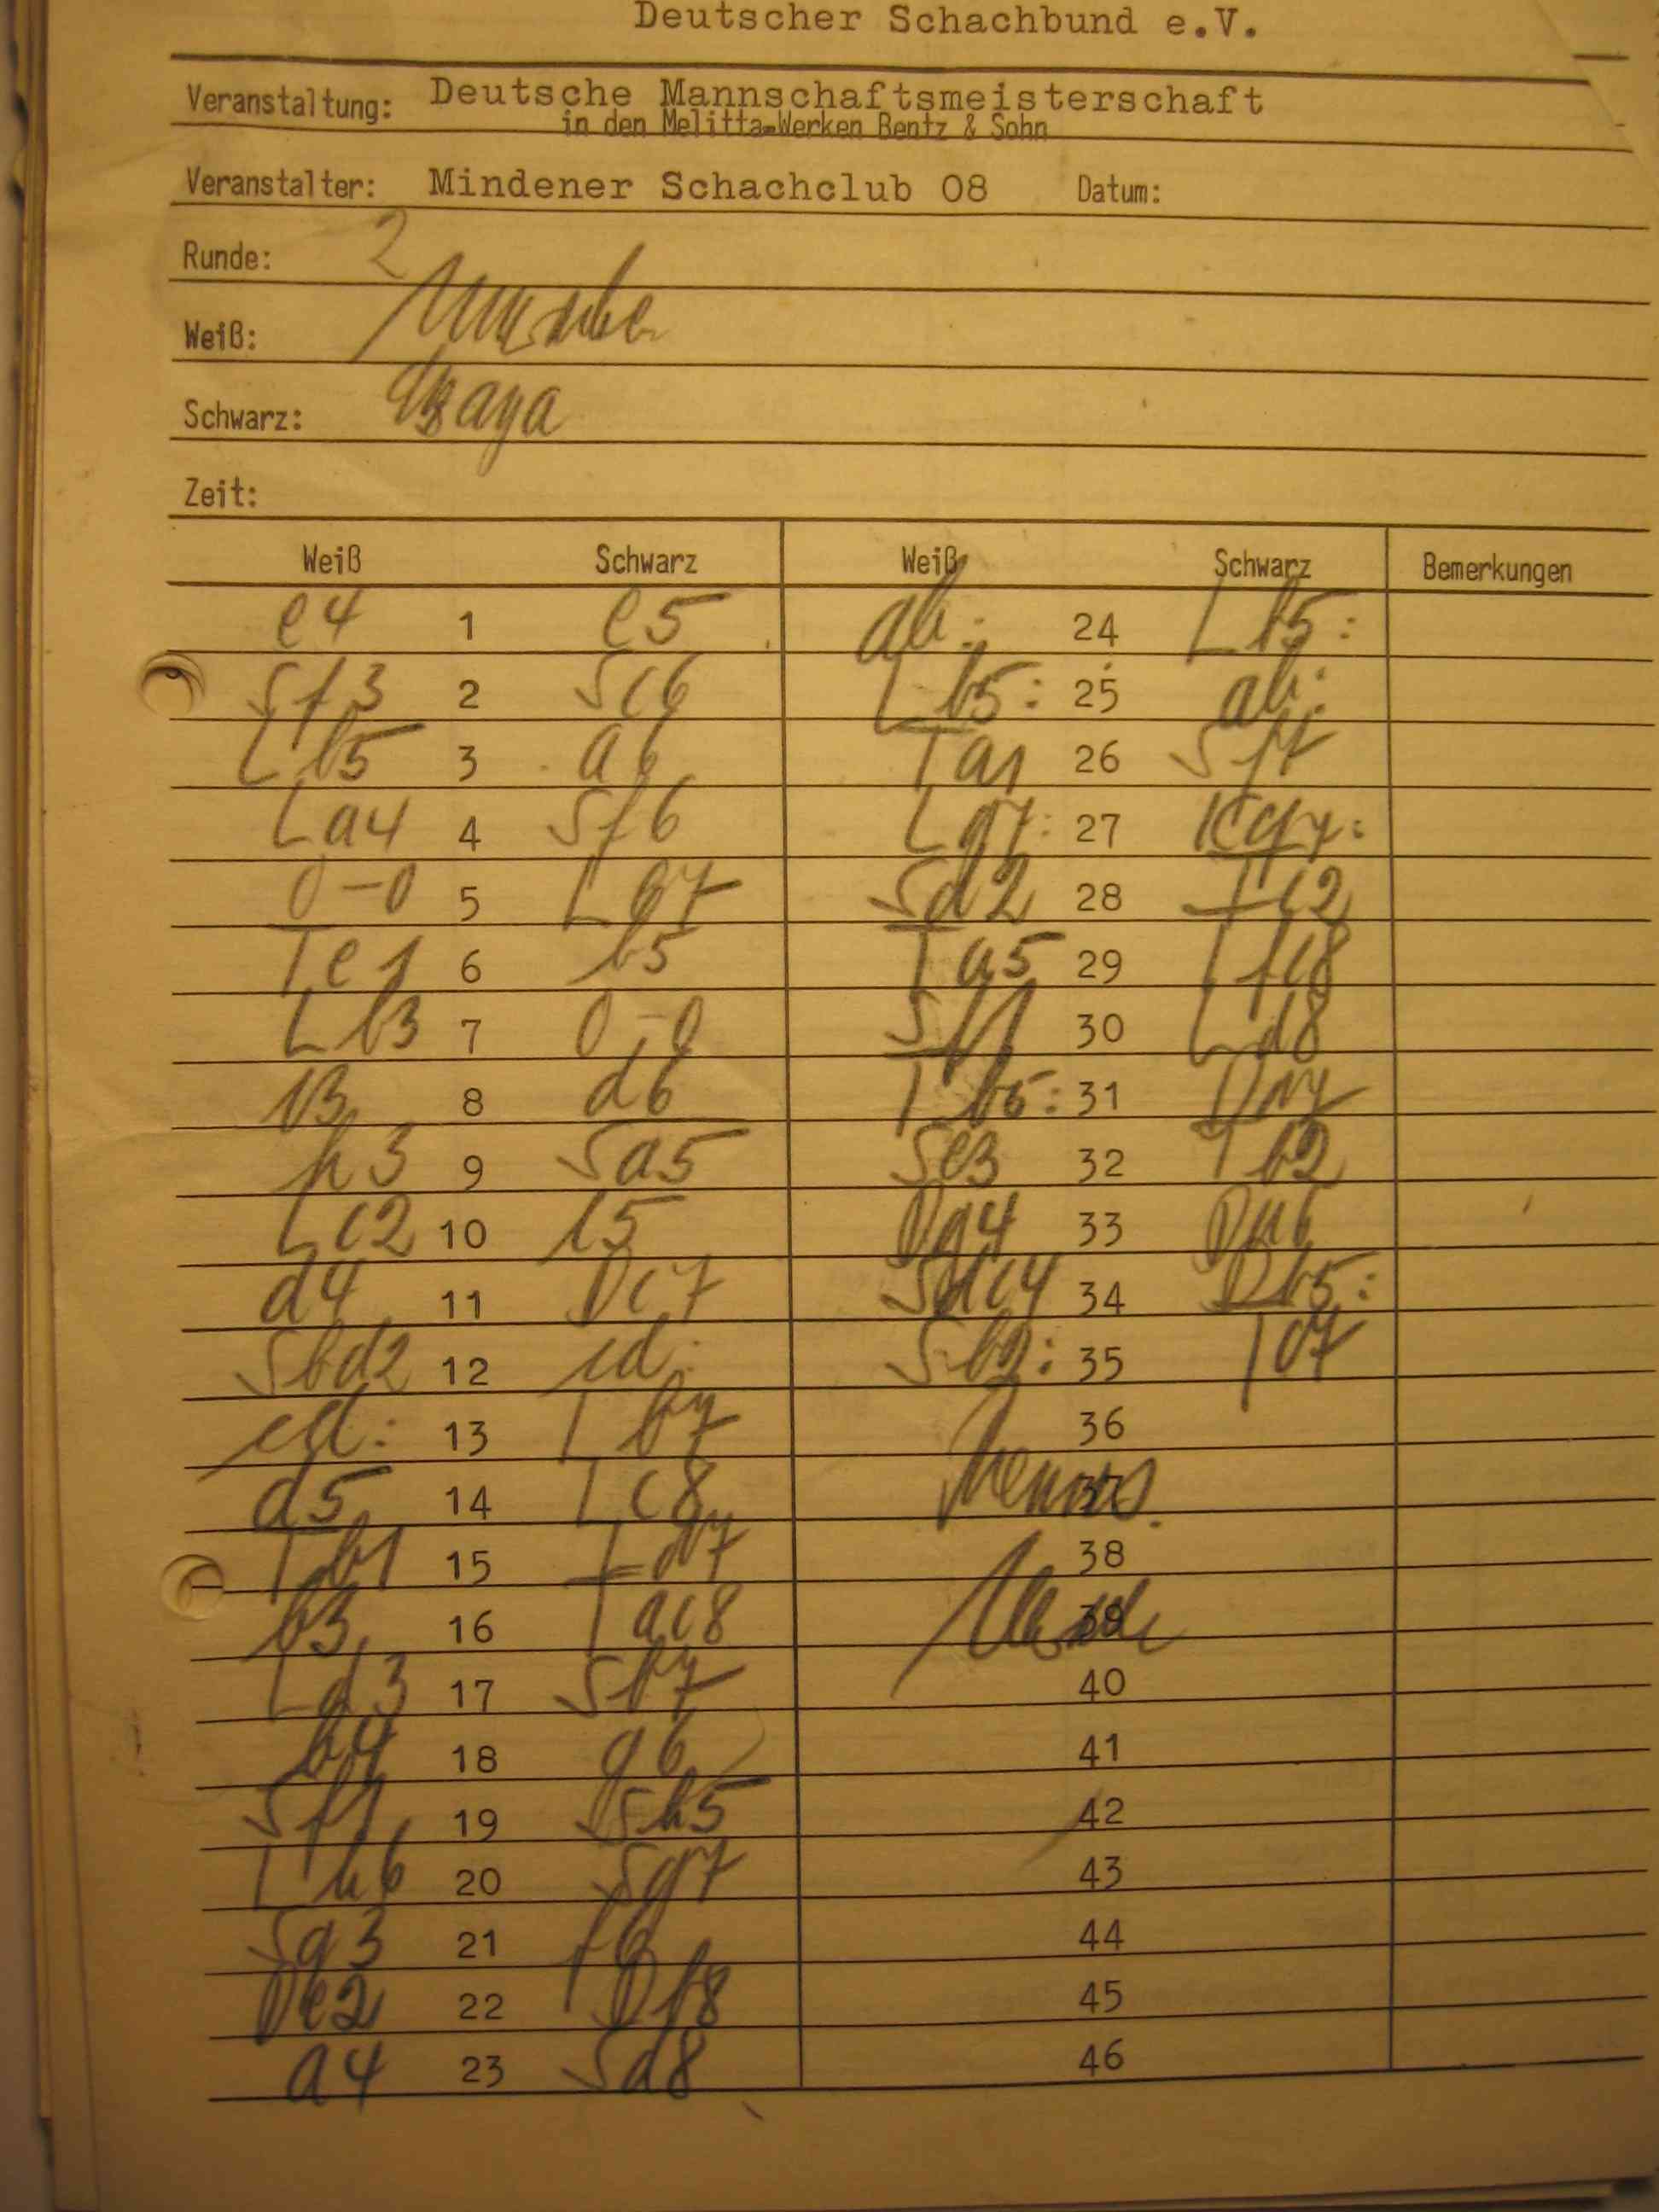 Deutscher Schachbund e.V.
Veranstaltung: Deutsche Mannschaftsmeisterschaft
in den Melitta-Werken Bentz & Sohn
Veranstalter: Mindener Schachclub 08 Datum:
Runde: 2
Weiß:
Schwarz:
Zeit:
Weiß Schwarz Weiß Schwarz Bemerkungen
e4 1 e5 ab: 24 Lb5:
Sf3 2 Sc6 Lb5: 25 ab:
Lb5 3 a6 Ta1 26 Sf7
La4 4 Sf6 Lg7: 27 Kg7:
0-0 5 Le7 Sd2 28 Tc2
Te1 6 b5 Ta5 29 Tfc8
Lb3 7 0-0 Sf1 30 Ld8
c3 8 d6 Tb5: 31 Da7
h3 9 Sa5 Se3 32 Tb2
Lc2 10 c5 Dg4 33 Da6
d4 11 Dc7 Sdc4 34 Db5:
Sbd2 12 cd: Sb2: 35 Td7
cd: 13 Lb7 36
d5 14 Lc8 37
Tb1 15 Ld7 38
b3 16 Tac8 39
Ld3 17 Sb7 40
b4 18 g6 41
Sf1 19 Sh5 42
Lh6 20 Sg7 43
Sg3 21 f6 44
De2 22 Db8 45
a4 23 Sd8 46